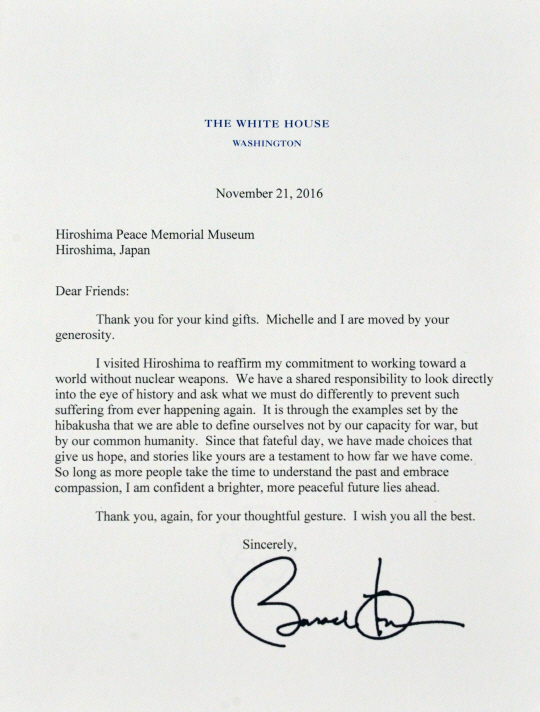 THE WHITE HOUSE
WASHINGTON
November 21, 2016
Hiroshima Peace Memorial Museum
Hiroshima, Japan
Dear Friends:
Thank you for your kind gifts. Michelle and I are moved by your
generosity.
I visited Hiroshima to reaffirm my commitment to working toward a
world without nuclear weapons. We have a shared responsibility to look directly
into the eye of history and ask what we must do differently to prevent such
suffering from ever happening again. It is through the examples set by the
hibakusha that we are able to define ourselves not by our capacity for war, but
by our common humanity. Since that fateful day, we have made choices that
give us hope, and stories like yours are a testament to how far we have come.
So long as more people take the time to understand the past and embrace
compassion, I am confident a brighter, more peaceful future lies ahead.
Thank you, again, for your thoughtful gesture. I wish you all the best.
Sincerely,
Barack Obama